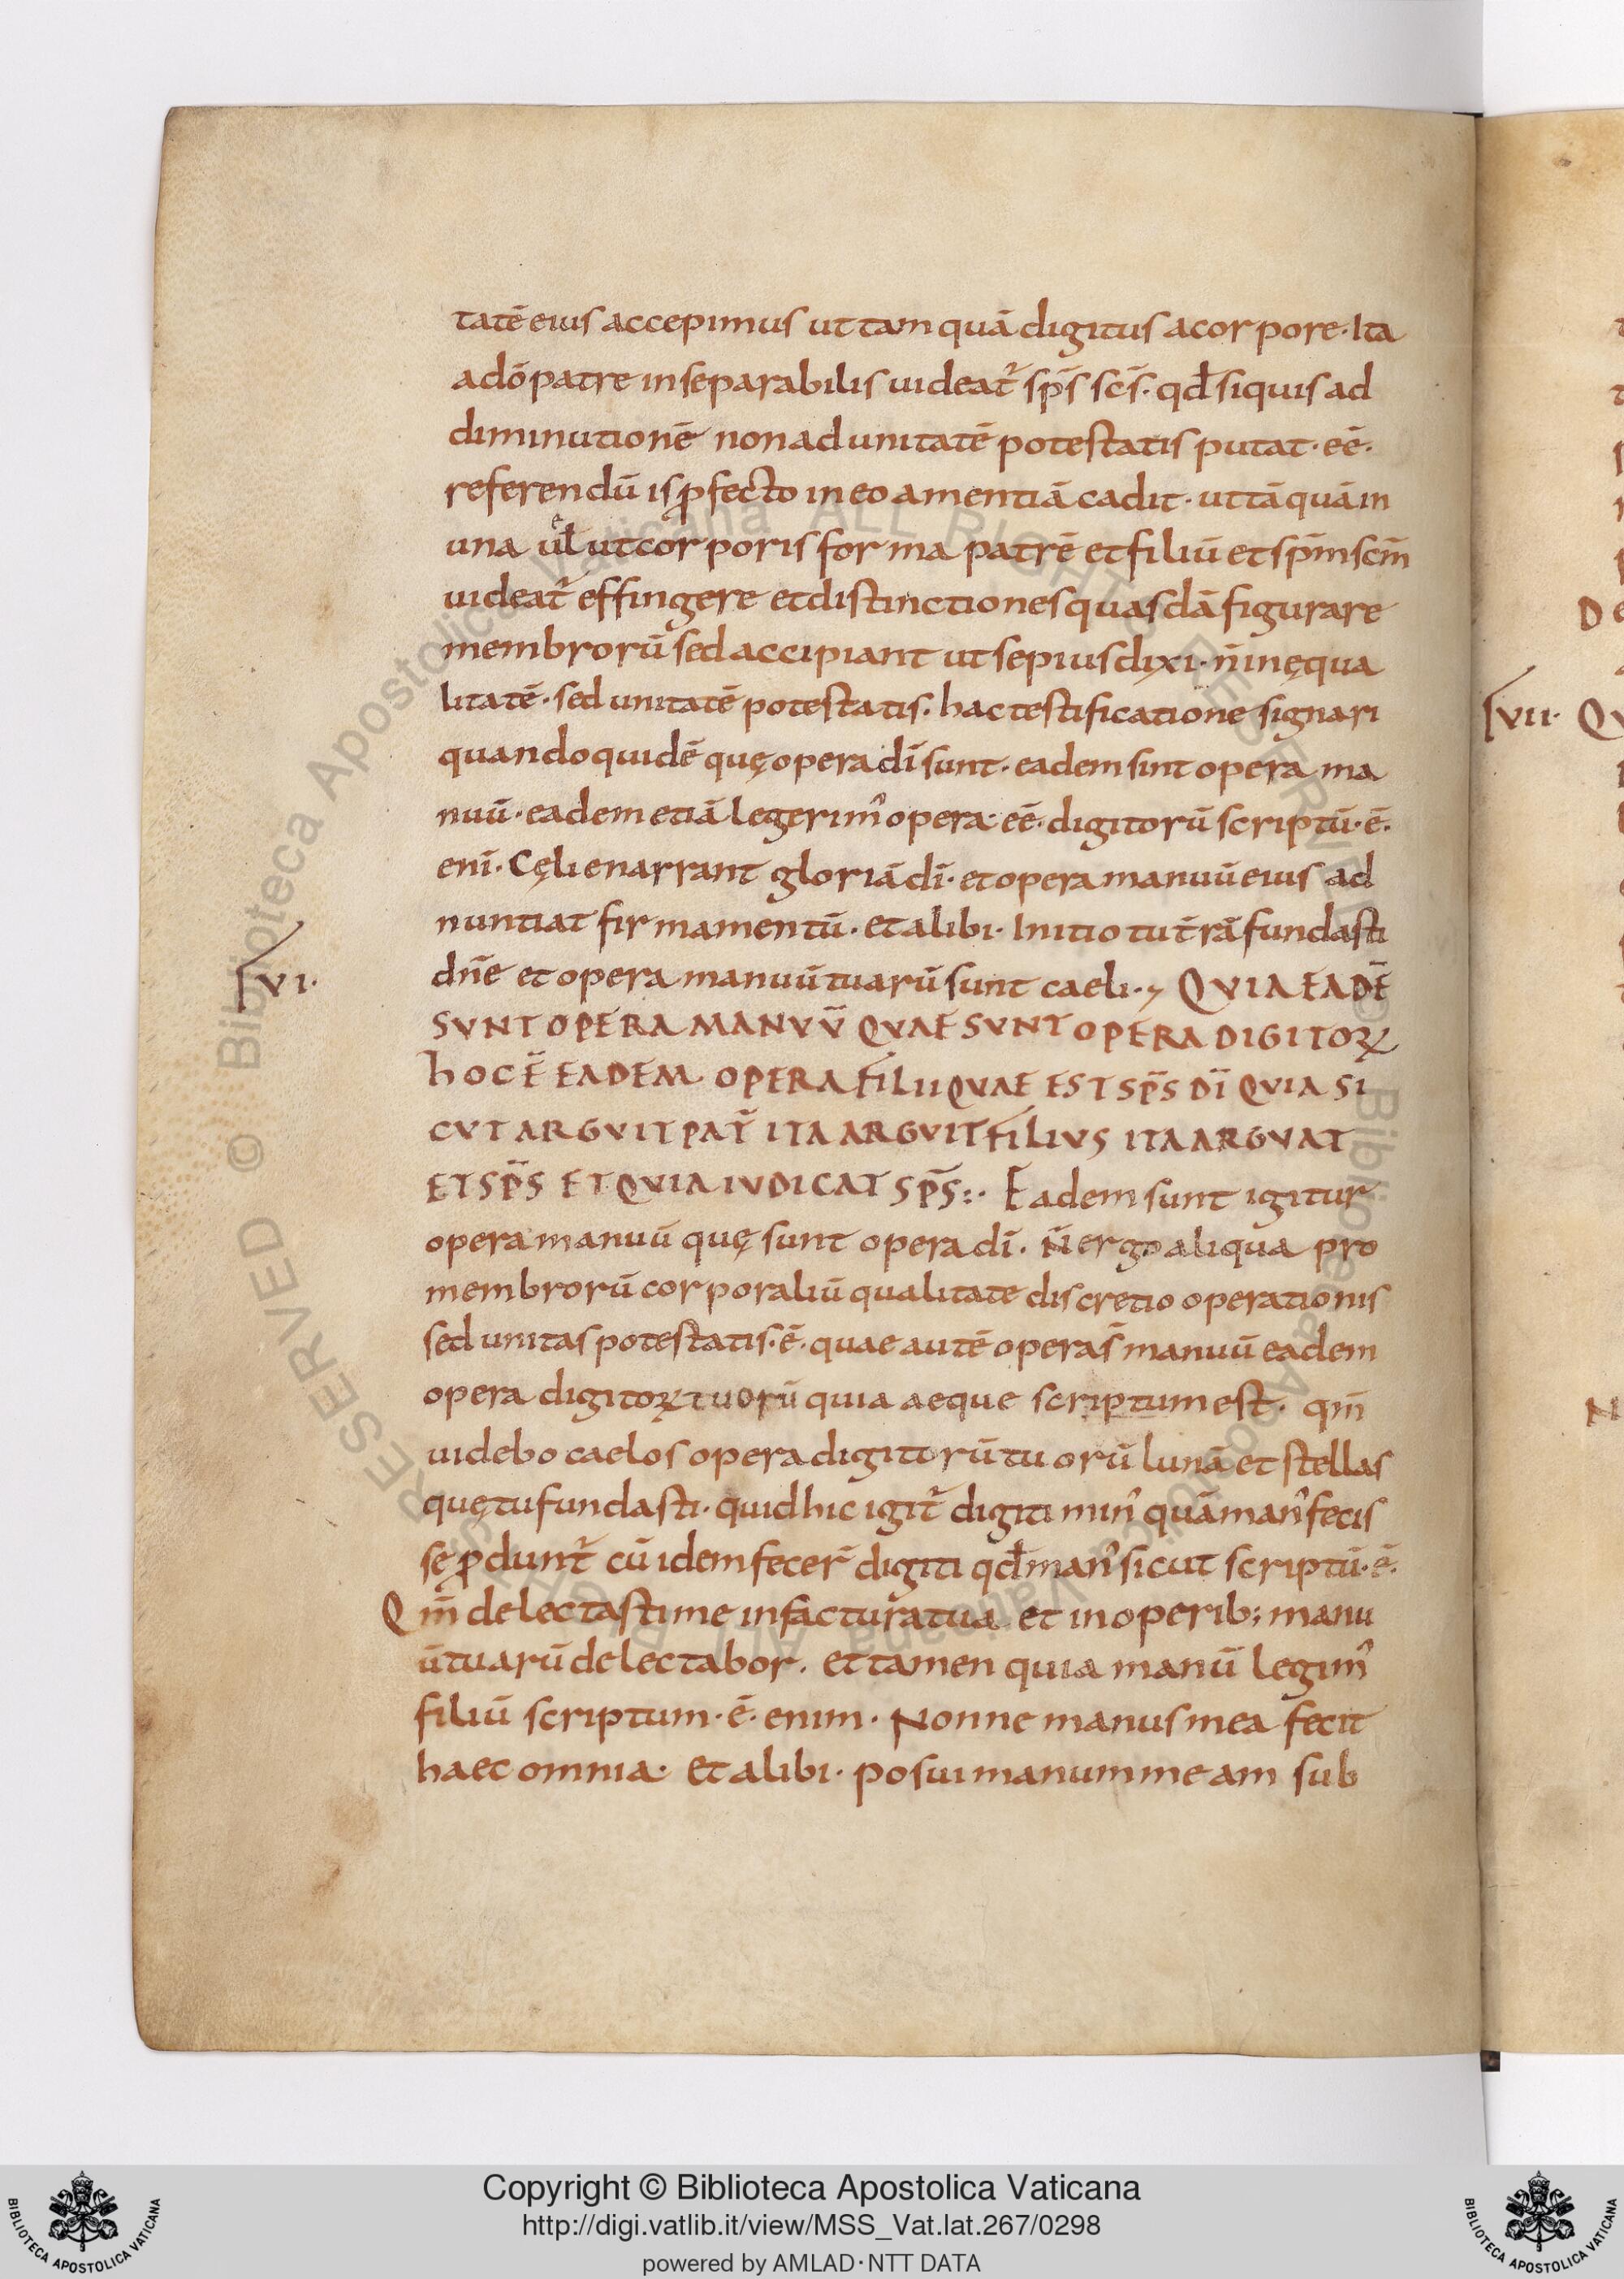 tatē eius accepimus ut tamquā digitus a corpore· Ita
a dō patre inseparabilis uideat̄ sp̄s sc̄s· qd̄ siquis ad
diminutionē non ad unitatē potestatis putat· eē·
referendū is ꝓfecto in eo amentiā cadit· ut tāquā in
una ue̅l ut corporis forma patrē et filiū et sp̄m sc̄m
uideat̄ effingere et distinctiones quasdā figurare
membrorū sed accipiant ut sepius dixi· n̄ inęqua
litatē· sed unitatē potestatis· hac testificatione signari
quandoquidē quę opera dī sunt· eadem sint opera ma
nuū· eadem etiā legerim᾽ opera· eē· digitorū scriptū· ē·
enī· Cęli enarrant gloriā dī· et opera manuū eius ad
nuntiat firmamentū· et alibi· Initio tu t̄rā fundasti
dn̄e et opera manuū tuarū sunt caeli·, QVIA EADĒ
VI·
SVNT OPERA MANVV̄ QVAE SVNT OPERA DIGITOꝜ
HOC Ē EADEM OPERA FILII QVAE EST SP̄S DĪ QVIA SI
CVT ARGVIT PAT̄ ITA ARGVIT FILIVS ITA ARGVAT
ET SP̄S ET QVIA IVDICAT SP̄S:· Eadem sunt igitur
opera manuū quę sunt opera dī· N̄ ergo aliqua pro
membrorū corporaliū qualitate discretio operationis
sed unitas potestatis· ē· quae autē opera s̄ manuū eadem
opera digitoꝝ tuorū quia aeque scriptum est· qm̄
uidebo caelos opera digitorū tuorū lunā et stellas
quę tu fundasti· quid hic igit̄ digiti min᾽ quā man᾽ fecis
sę ꝓdunt̄ cū idem fecer̄ digiti qd̄ man᾽ sicut scriptū· ē·
Qm̄ delectasti me in factura tua et in operib; manu
ū tuarū delectabor· et tamen quia manū legim᾽
filiū scriptum· ē· enim· Nonne manus mea fecit
haec omnia· Et alibi· posui manum meam sub
VII·
Copyright © Biblioteca Apostolica Vaticana
http://digi.vatlib.it/view/MSS_Vat.lat.267/0298
powered by AMLAD·NTT DATA
BIBLIOTECA APOSTOLICA VATICANA
BIBLIOTECA APOSTOLICA VATICANA